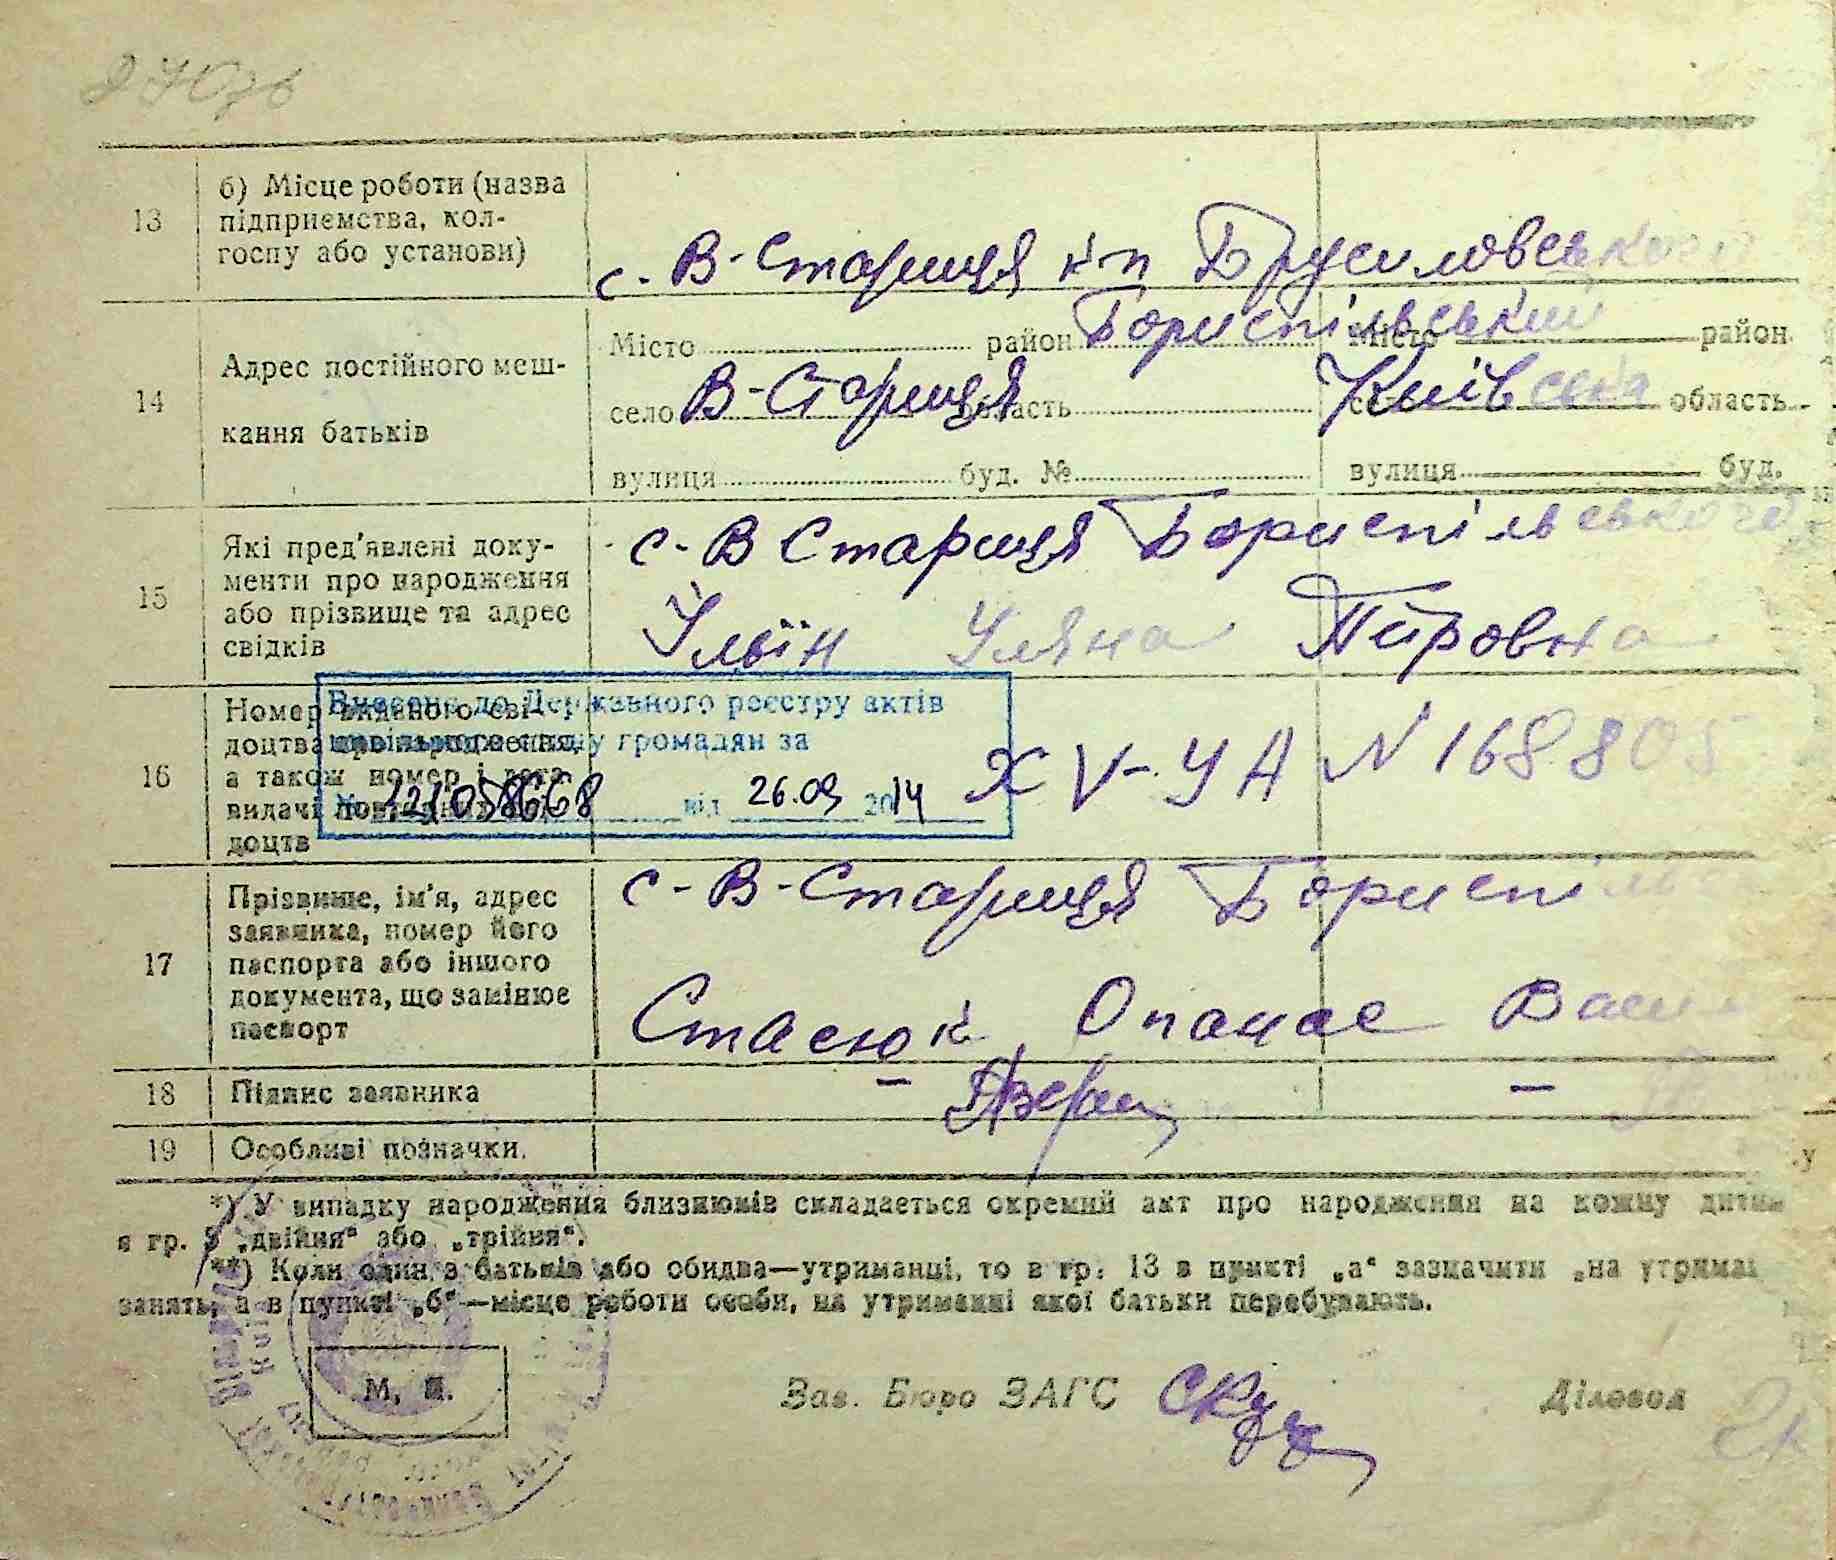 13
б) Місце роботи (назва
підприємства, кол-
госпу або установи)
с. В-Стариця к-п Брусиловського
14
Адрес постійного меш-
кання батьків
Місто район Бориспільський Місто район
село В-Стариця область Київська область
вулиця буд. № вулиця буд.
15
Які пред'явлені доку-
менти про народження
або прізвище та адрес
свідків
с-В Стариця Бориспільського
Ульїн Уляна Петровна
16
Номер виданого сві-
доцтва про народження,
а також номер і дата
видачі
доцтв
Внесено до Державного реєстру актів
цивільного стану громадян за
№ 121058668 від 26.09 2014
XV-УА N 168805
17
Прізвище, ім'я, адрес
заявника, номер його
паспорта або іншого
документа, що замінює
паспорт
с-В-Стариця Бориспіль
Стасюк Опанас Васи
18
Підпис заявника
– –
19
Особливі позначки.
*) У випадку народження близнюків складається окремий акт про народження на кожну дити
в гр. 5 „двійня“ або „трійня“.
**) Коли один з батьків або обидва—утриманці, то в гр. 13 в пункті „а“ зазначити „на утриман
занять, а в пункті „б“—місце роботи особи, на утриманні якої батьки перебувають.
М. П.
Зав. Бюро ЗАГС
Діловод